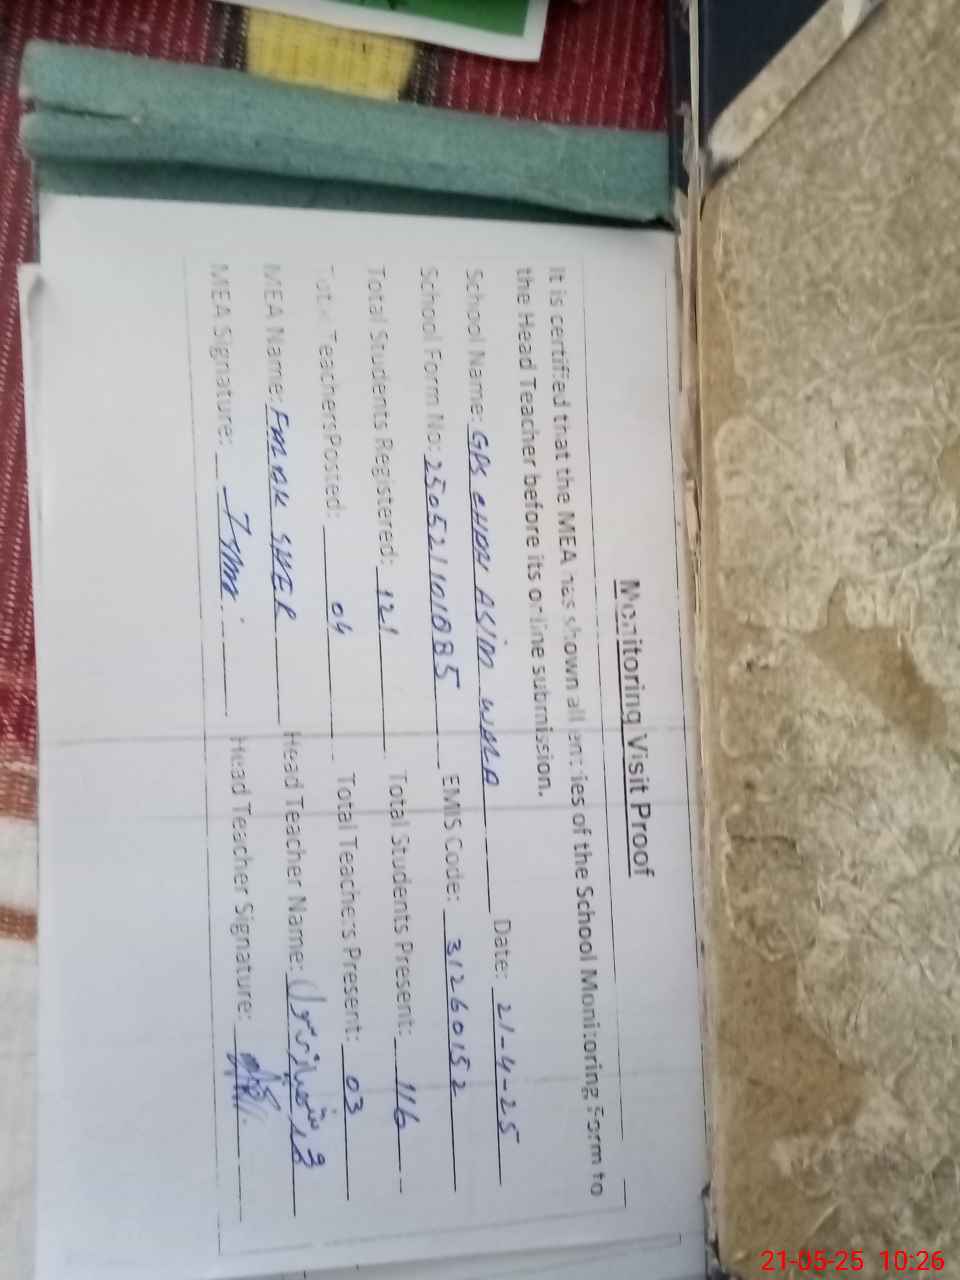 Monitoring Visit Proof
It is certified that the MEA has shown all entries of the School Monitoring Form to
the Head Teacher before its online submission.
School Name: GPS CHAN ASIM WALA Date: 21-4-25
School Form No: 250521101085 EMIS Code: 31260152
Total Students Registered: 121 Total Students Present: 116
Total TeachersPosted: 04 Total Teachers Present: 03
MEA Name: SHER Head Teacher Name:
MEA Signature: Head Teacher Signature:
21-05-25 10:26